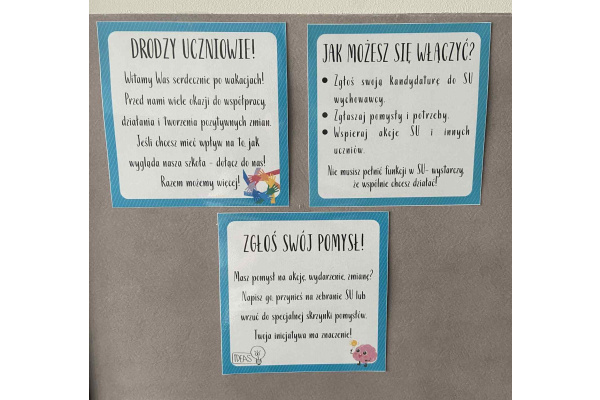 DRODZY UCZNIOWIE!
Witamy Was serdecznie po wakacjach!
Przed nami wiele okazji do współpracy,
działania i tworzenia pozytywnych zmian.
Jeśli chcesz mieć wpływ na to, jak
wygląda nasza szkoła - dołącz do nas!
Razem możemy więcej!
JAK MOŻESZ SIĘ WŁĄCZYĆ?
• Zgłoś swoją kandydaturę do SU
wychowawcy.
• Zgłaszaj pomysły i potrzeby.
• Wspieraj akcje SU i innych
uczniów.
Nie musisz pełnić funkcji w SU- wystarczy,
że wspólnie chcesz działać!
ZGŁOŚ SWÓJ POMYSŁ!
Masz pomysł na akcję, wydarzenie, zmianę?
Napisz go, przynieś na zebranie SU lub
wrzuć do specjalnej skrzynki pomysłów.
Twoja inicjatywa ma znaczenie!
IDEAS